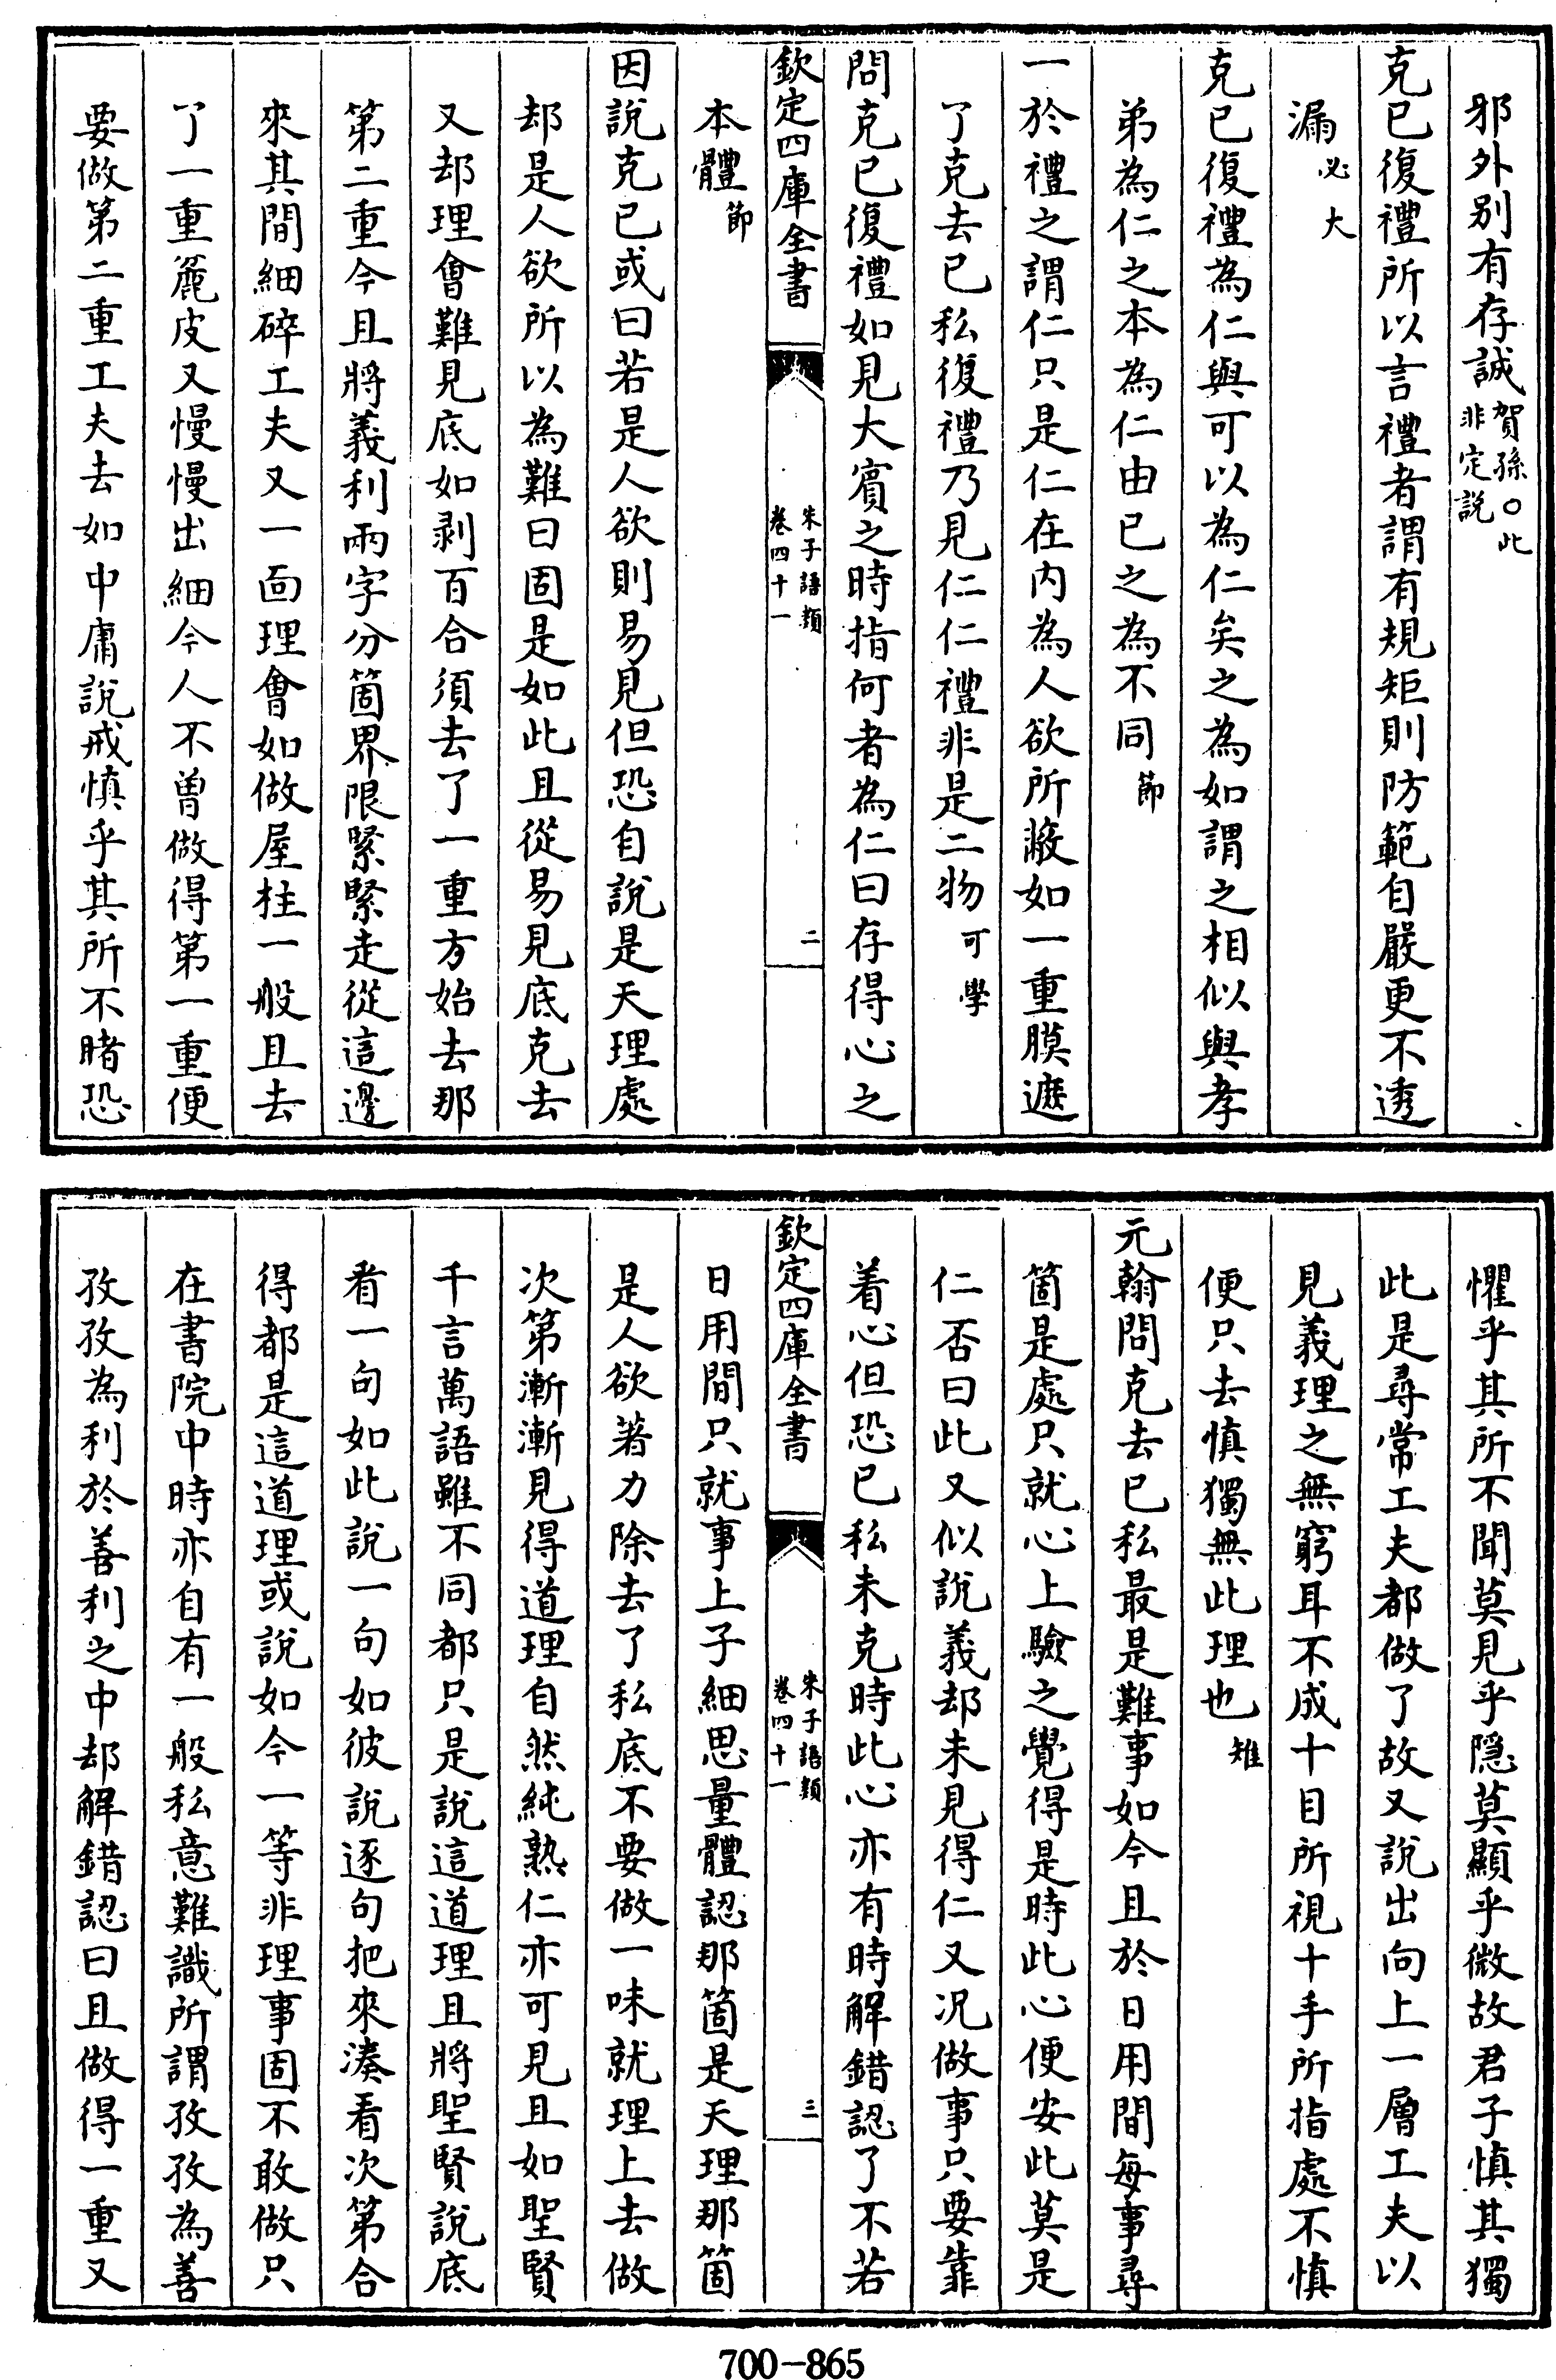 邪外别有存誠賀孫○此非定説
克己復禮所以言禮者謂有規矩則防範自嚴更不透
漏必大
克己復禮為仁與可以為仁矣之為如謂之相似與孝
弟為仁之本為仁由己之為不同節
一於禮之謂仁只是仁在内為人欲所蔽如一重膜遮
了克去己私復禮乃見仁仁禮非是二物可學
問克己復禮如見大賓之時指何者為仁曰存得心之
欽定四庫全書
朱子語類
卷四十一
二
本體節
因說克己或曰若是人欲則易見但恐自說是天理處
却是人欲所以為難曰固是如此且從易見底克去
又却理會難見底如剥百合須去了一重方始去那
第二重今且將義利兩字分箇界限緊緊走從這邊
來其間細碎工夫又一面理會如做屋柱一般且去
了一重麄皮又慢慢出細今人不曽做得第一重便
要做第二重工夫去如中庸說戒慎乎其所不睹恐
懼乎其所不聞莫見乎隱莫顯乎微故君子慎其獨
此是尋常工夫都做了故又說出向上一層工夫以
見義理之無窮耳不成十目所視十手所指處不慎
便只去慎獨無此理也雉
元翰問克去己私最是難事如今且於日用間每事尋
箇是處只就心上驗之覺得是時此心便安此莫是
仁否曰此又似說義却未見得仁又况做事只要靠
着心但恐己私未克時此心亦有時解錯認了不若
欽定四庫全書
朱子語類
卷四十一
三
日用間只就事上子細思量體認那箇是天理那箇
是人欲著力除去了私底不要做一味就理上去做
次第漸漸見得道理自然純熟仁亦可見且如聖賢
千言萬語雖不同都只是說這道理且將聖賢說底
看一句如此說一句如彼說逐句把來湊看次第合
得都是這道理或說如今一等非理事固不敢做只
在書院中時亦自有一般私意難識所謂孜孜為善
孜孜為利於善利之中却解錯認曰且做得一重又
700-865